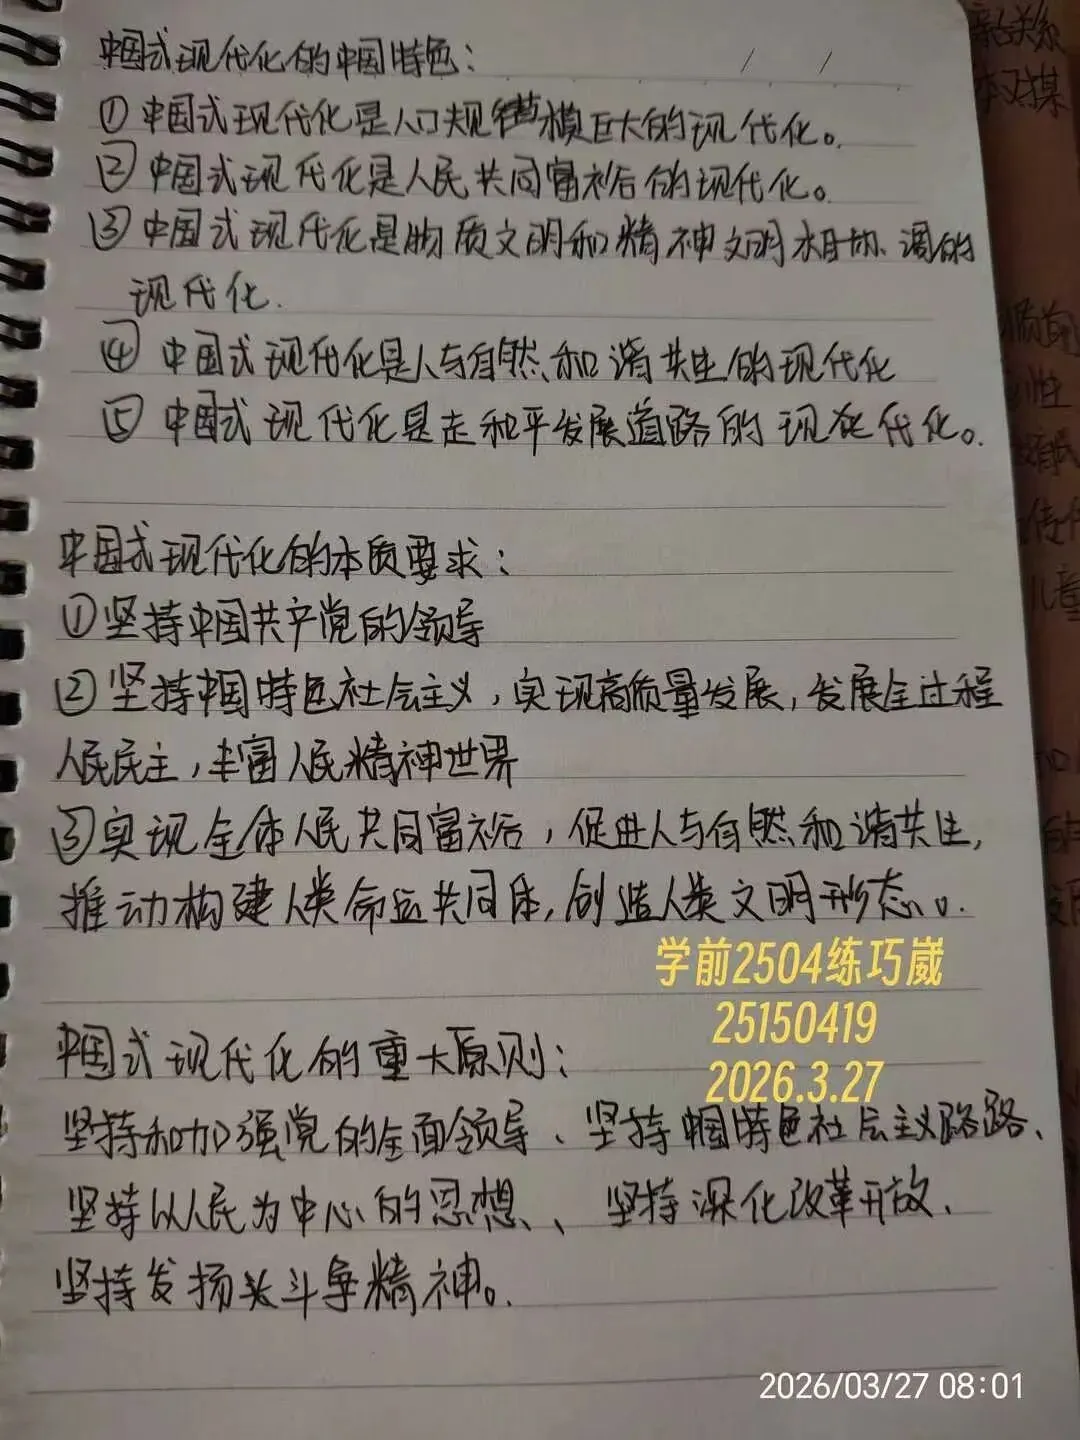 中国式现代化的中国特色：
①中国式现代化是人口规模巨大的现代化。
②中国式现代化是人民共同富裕的现代化。
③中国式现代化是物质文明和精神文明相协调的
现代化.
④中国式现代化是人与自然和谐共生的现代化
⑤中国式现代化是走和平发展道路的现代化。
中国式现代化的本质要求：
①坚持中国共产党的领导
②坚持中国特色社会主义，实现高质量发展，发展全过程
人民民主，丰富人民精神世界
③实现全体人民共同富裕，促进人与自然和谐共生，
推动构建人类命运共同体，创造人类文明形态。
学前2504练巧崴
25150419
2026.3.27
中国式现代化的重大原则：
坚持和加强党的全面领导、坚持中国特色社会主义路路、
坚持以人民为中心的思想、坚持深化改革开放、
坚持发扬斗争精神。
2026/03/27 08:01
亲子关系